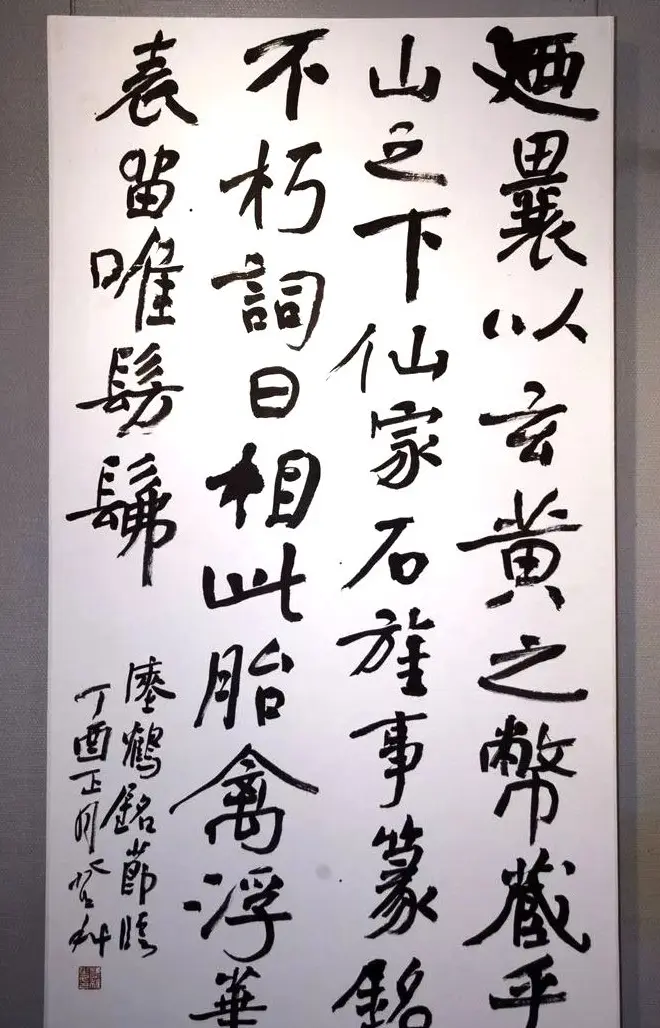 廼裹以玄黄之幣藏乎
山之下仙家石旌事篆銘
不朽詞曰相此胎禽浮華
表留唯髣髴
瘞鶴銘節臨
丁酉正月登科